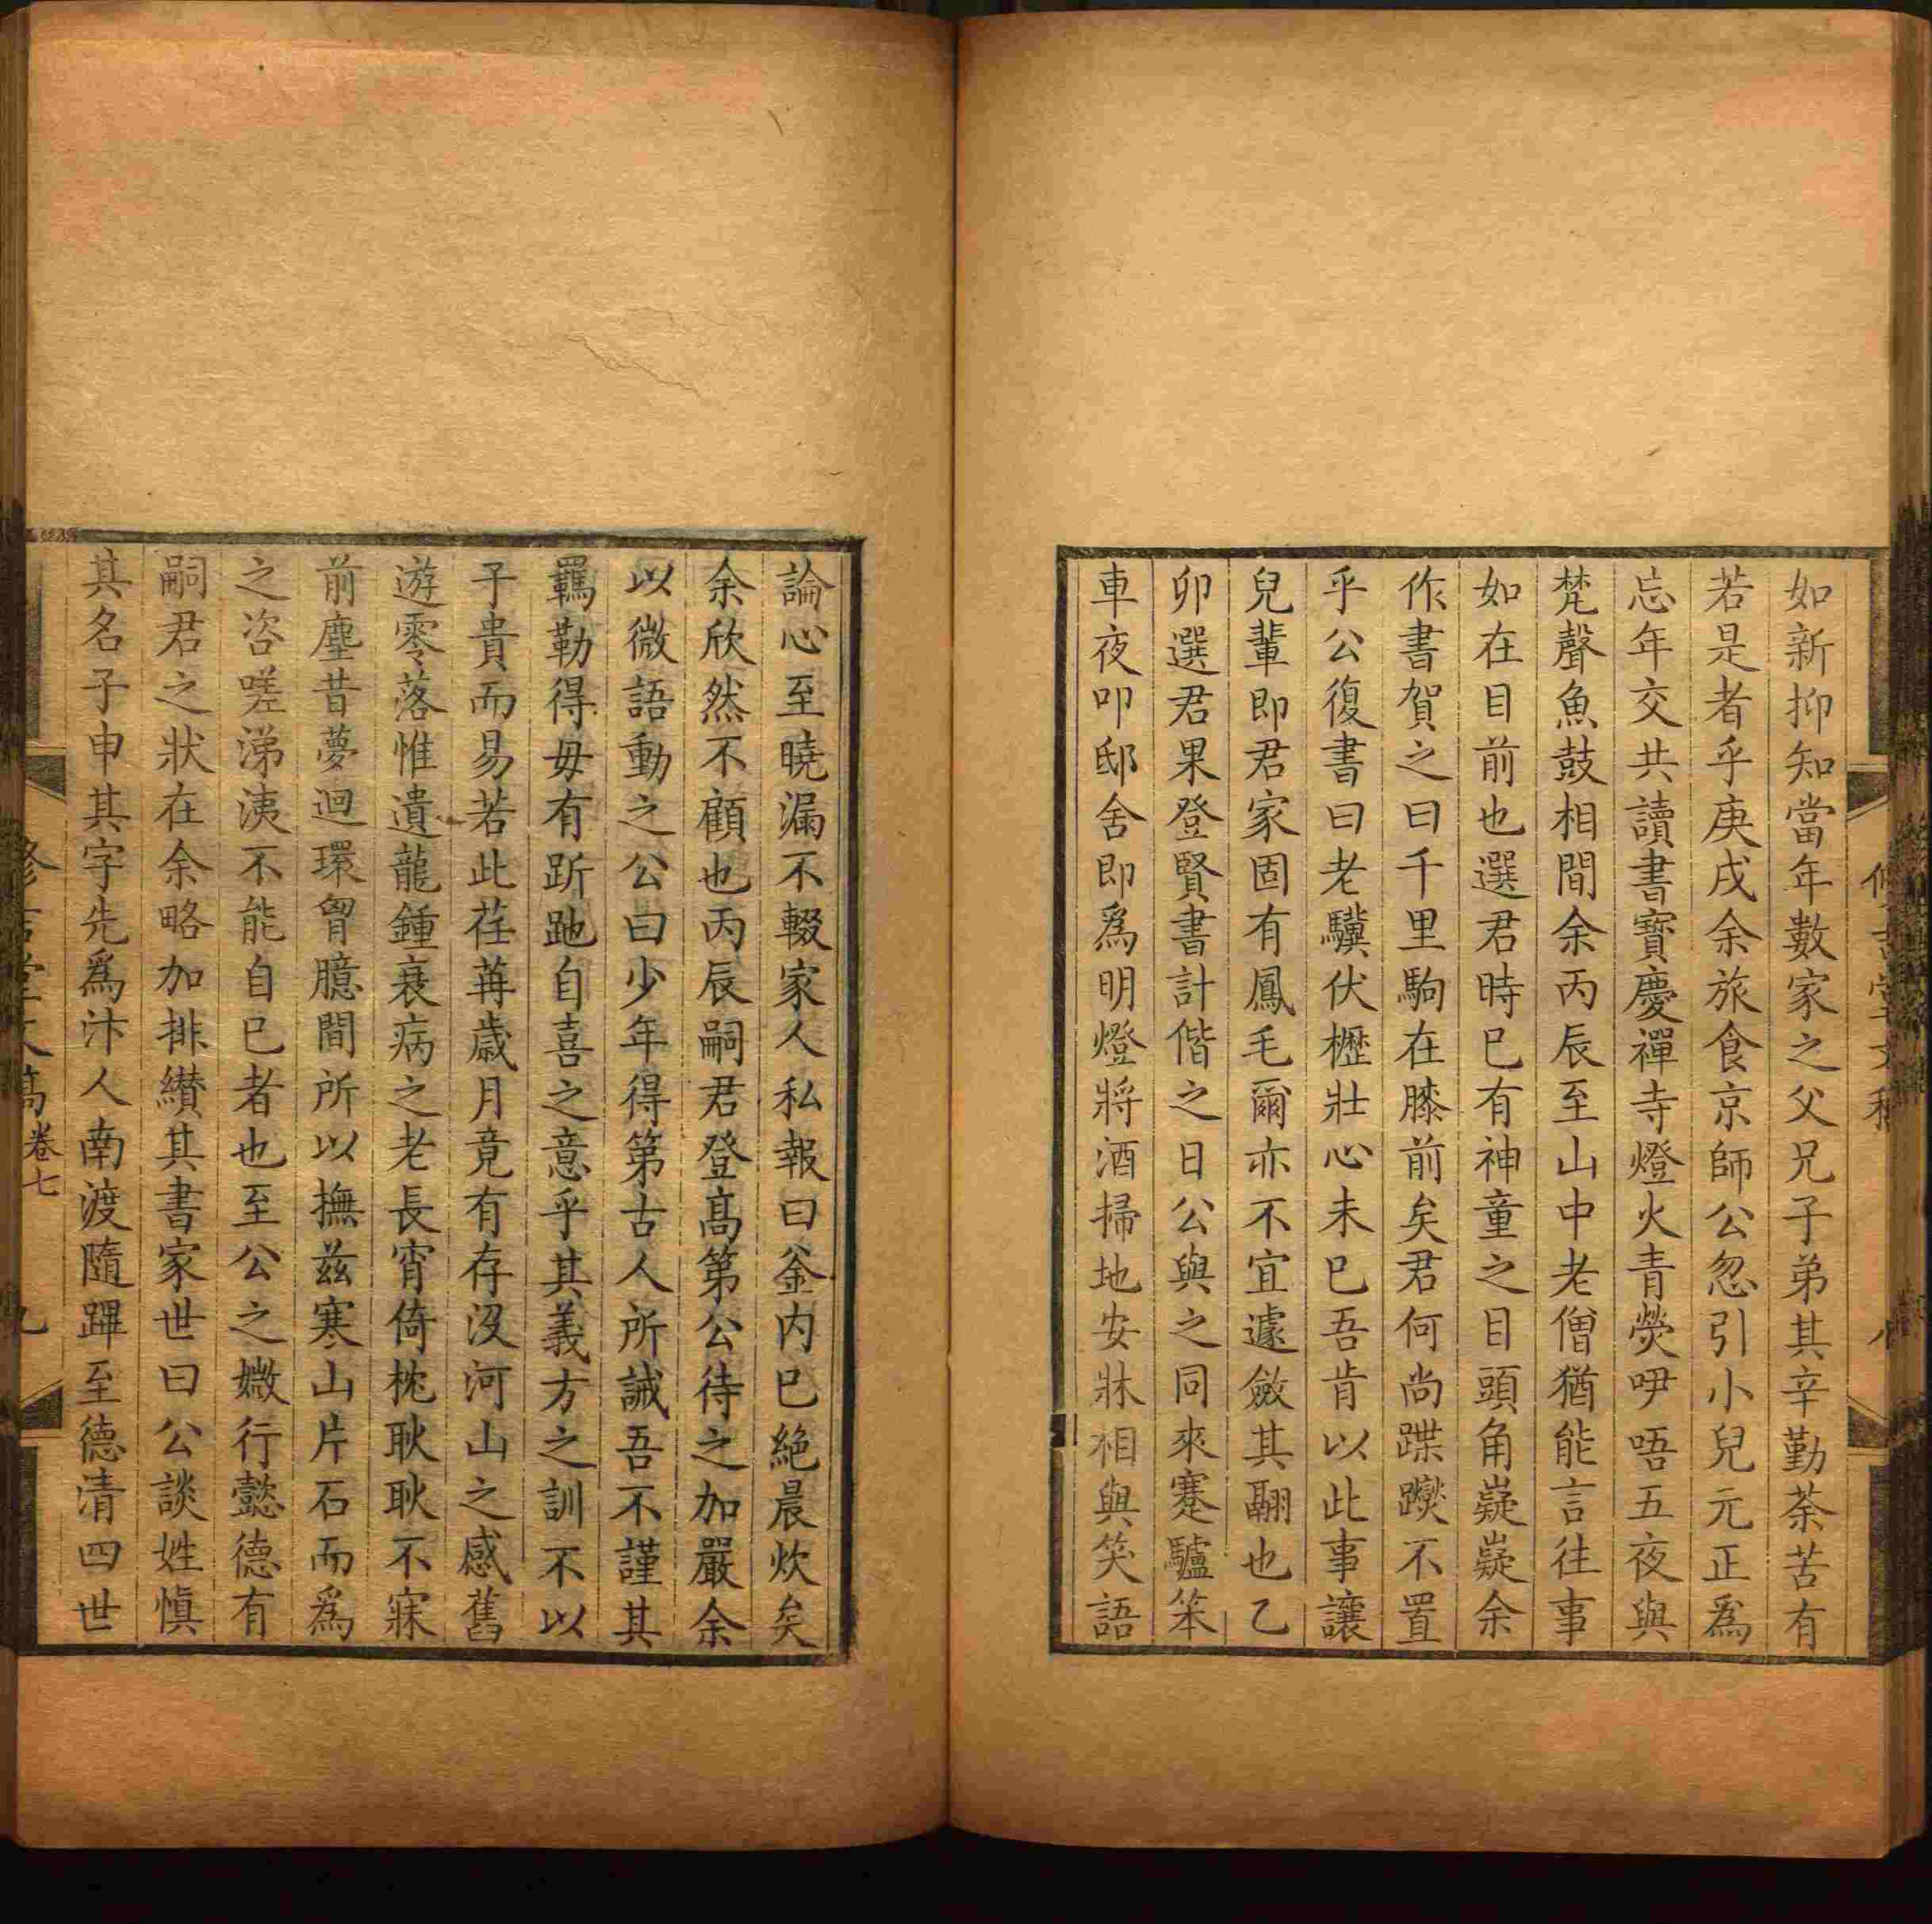 如新抑知當年數家之父兄子弟其辛勤荼苦有
若是者乎庚戌余旅食京師公忽引小兒元正爲
忘年交共讀書寶慶禪寺燈火青熒咿唔五夜與
梵聲魚鼓相間余丙辰至山中老僧猶能言往事
如在目前也選君時已有神童之目頭角嶷嶷余
作書賀之曰千里駒在膝前矣君何尚蹀躞不置
乎公復書曰老驥伏櫪壯心未已吾肯以此事讓
兒輩即君家固有鳳毛爾亦不宜遽斂其翮也乙
卯選君果登賢書計偕之日公與之同來蹇驢笨
車夜叩邸舍即爲明燈將酒掃地安牀相與笑語
論心至曉漏不輟家人私報曰釡内已絶晨炊矣
余欣然不顧也丙辰嗣君登髙第公待之加嚴余
以微語動之公曰少年得第古人所誡吾不謹其
羈勒得毋有跅跑自喜之意乎其義方之訓不以
子貴而易若此荏苒歲月竟有存沒河山之感舊
遊零落惟遺龍鍾衰病之老長宵倚枕耿耿不寐
前塵昔夢迴環胷臆間所以撫兹寒山片石而爲
之咨嗟涕洟不能自已者也至公之媺行懿德有
嗣君之狀在余略加排纘其書家世曰公談姓愼
其名子申其字先爲汴人南渡隨蹕至德清四世
卷七